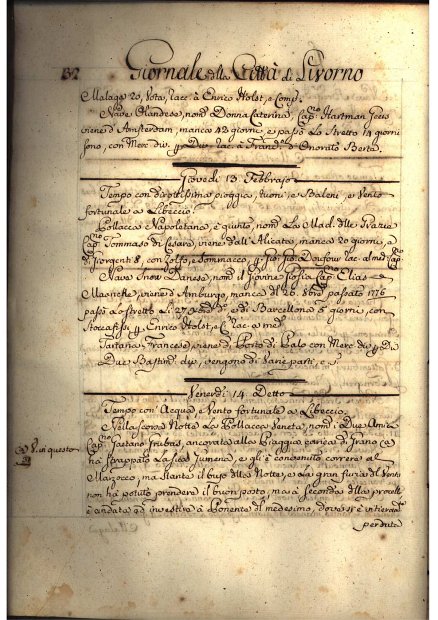 132 Giornale della Città di Livorno
Malaga 20, Vota, racc. à Enrico Holst, e Comp.
Nave Olandese, nom. Donna Caterina, Cap.no Hartman
viene d'Amsterdam, manca 42 giorni, e passò Lo Stretto 14 giorni
sono, con Merc. div. racc. à Franc. d'Onorato Berte.
Giovedì 13 Febbrajo
Tempo con dirottissima pioggia, tuoni, e Baleni, e Vento
fortunale a Libeccio.
Pollacca Napoletana, è giunta, nom. La Mad. delle Grazie
Cap.no Tommaso di Cesare, viene dall'Alicata, manca 20 giorni, e
di 8, con Zolfo, e Sommacco, Gio. Gio. Doufour racc. al med. Cap.no
Nave Snow Danese, nom. Il Giovine Cap.no Elias
viene d'Amburgo, manca dal 26. 8bre passato 1776
passò Lo Stretto li 27, e di Barcellona 6 giorni, con
Stoccafissi Enrico Holst, e C. racc. a me
Tartana Francese, viene di Porto di Palo con Merc. div.
Due Bastim. div. vengono di Varie parti, e
Venerdì 14 Detto
Tempo con Acqua, e Vento fortunale a Libeccio.
Nella scorsa Notte La Pollacca Veneta, nom. i Due Amici
V. vi questo Cap.no Gaetano ancorata alla Spiaggia carica di Grano
ha strappato La sua Jumena, e gl'è convenuto correre al
Marzocco, ma stante il bujo della Notte, e La gran furia del Vento
non ha potuto prendere il buon posto, ma à seconda della procella
è andata ad investire à Ponente del medesimo, dove si è intieram.
perduta